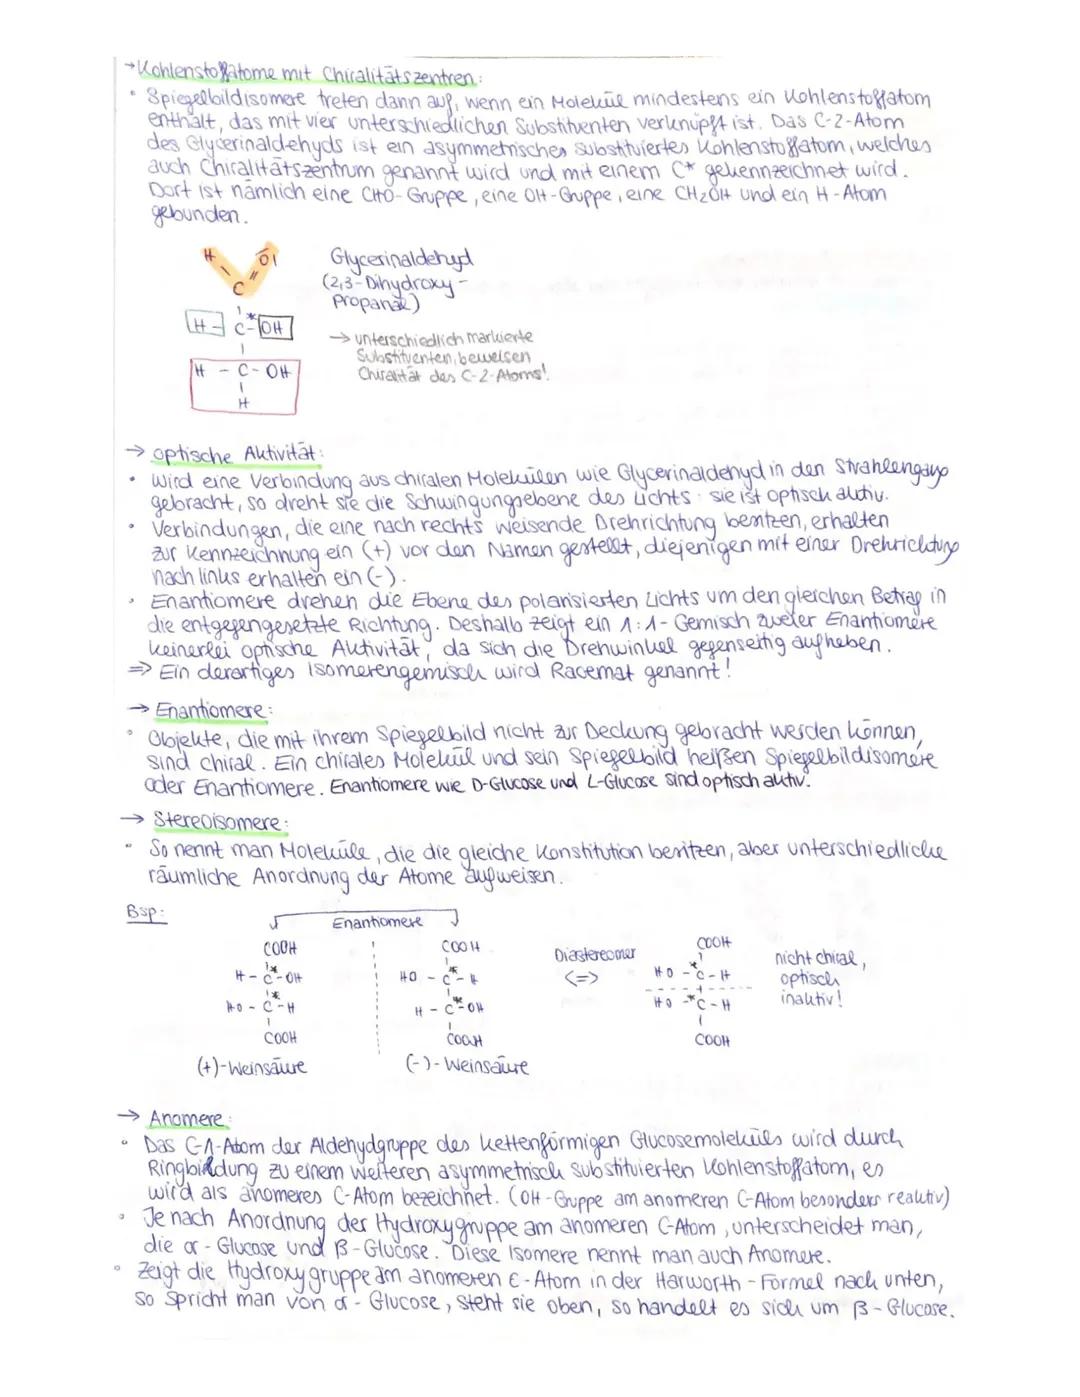 → Kohlenstoffatome mit Chiralitätszentren:
• Spiegelbildisomere treten dann auf, wenn ein Molekül mindestens ein Kohlenstoffatom
enthält, das mit vier unterschiedlichen Substituenten verknüpft ist. Das C-2-Atom
des Glycerinaldehyds ist ein asymmetrisches substituiertes Kohlenstoffatom, welches
auch Chiralitätszentrum genannt wird und mit einem C* gekennzeichnet wird.
Dort ist nämlich eine CHO-Gruppe, eine OH-Gruppe, eine CH₂OH und ein H-Atom
gebunden.
H O
C
H - C* - OH
H - C - OH
H
Glycerinaldehyd
(2,3-Dihydroxy-
Propanal)
→ unterschiedlich markierte
Substituenten, beweisen
Chiralität des C-2-Atoms!
→ optische Aktivität:
• Wird eine Verbindung aus chiralen Molekülen wie Glycerinaldehyd in den Strahlengang
gebracht, so dreht sie die Schwingungsebene des Lichts: sie ist optisch aktiv.
• Verbindungen, die eine nach rechts weisende Drehrichtung besitzen, erhalten
zur Kennzeichnung ein (+) vor den Namen gestellt, diejenigen mit einer Drehrichtung
nach links erhalten ein (-).
• Enantiomere drehen die Ebene des polarisierten Lichts um den gleichen Betrag in
die entgegengesetzte Richtung. Deshalb zeigt ein 1:1-Gemisch zweier Enantiomere
keinerlei optische Aktivität, da sich die Drehwinkel gegenseitig aufheben.
=> Ein derartiges Isomerengemisch wird Racemat genannt!
→ Enantiomere:
• Objekte, die mit ihrem Spiegelbild nicht zur Deckung gebracht werden können,
sind chiral. Ein chirales Molekül und sein Spiegelbild heißen Spiegelbildisomere
oder Enantiomere. Enantiomere wie D-Glucose und L-Glucose sind optisch aktiv.
→ Stereoisomere:
• So nennt man Moleküle, die die gleiche Konstitution besitzen, aber unterschiedliche
räumliche Anordnung der Atome aufweisen.
Bsp:
Enantiomere
COOH
H - C* - OH
HO - C* - H
COOH
(+)-Weinsäure
COOH
HO - C* - H
H - C* - OH
COOH
(-)-Weinsäure
Diastereomer
<=>
COOH
HO - *C - H
HO - *C - H
COOH
nicht chiral,
optisch
inaktiv!
→ Anomere:
• Das C-1-Atom der Aldehydgruppe des kettenförmigen Glucosemoleküls wird durch
Ringbildung zu einem weiteren asymmetrisch substituierten Kohlenstoffatom, es
wird als anomeres C-Atom bezeichnet. (OH-Gruppe am anomeren C-Atom besonders reaktiv)
• Je nach Anordnung der Hydroxygruppe am anomeren C-Atom, unterscheidet man,
die α-Glucose und β-Glucose. Diese Isomere nennt man auch Anomere.
• Zeigt die Hydroxygruppe am anomeren C-Atom in der Harworth-Formel nach unten,
so spricht man von α-Glucose, steht sie oben, so handelt es sich um β-Glucose.